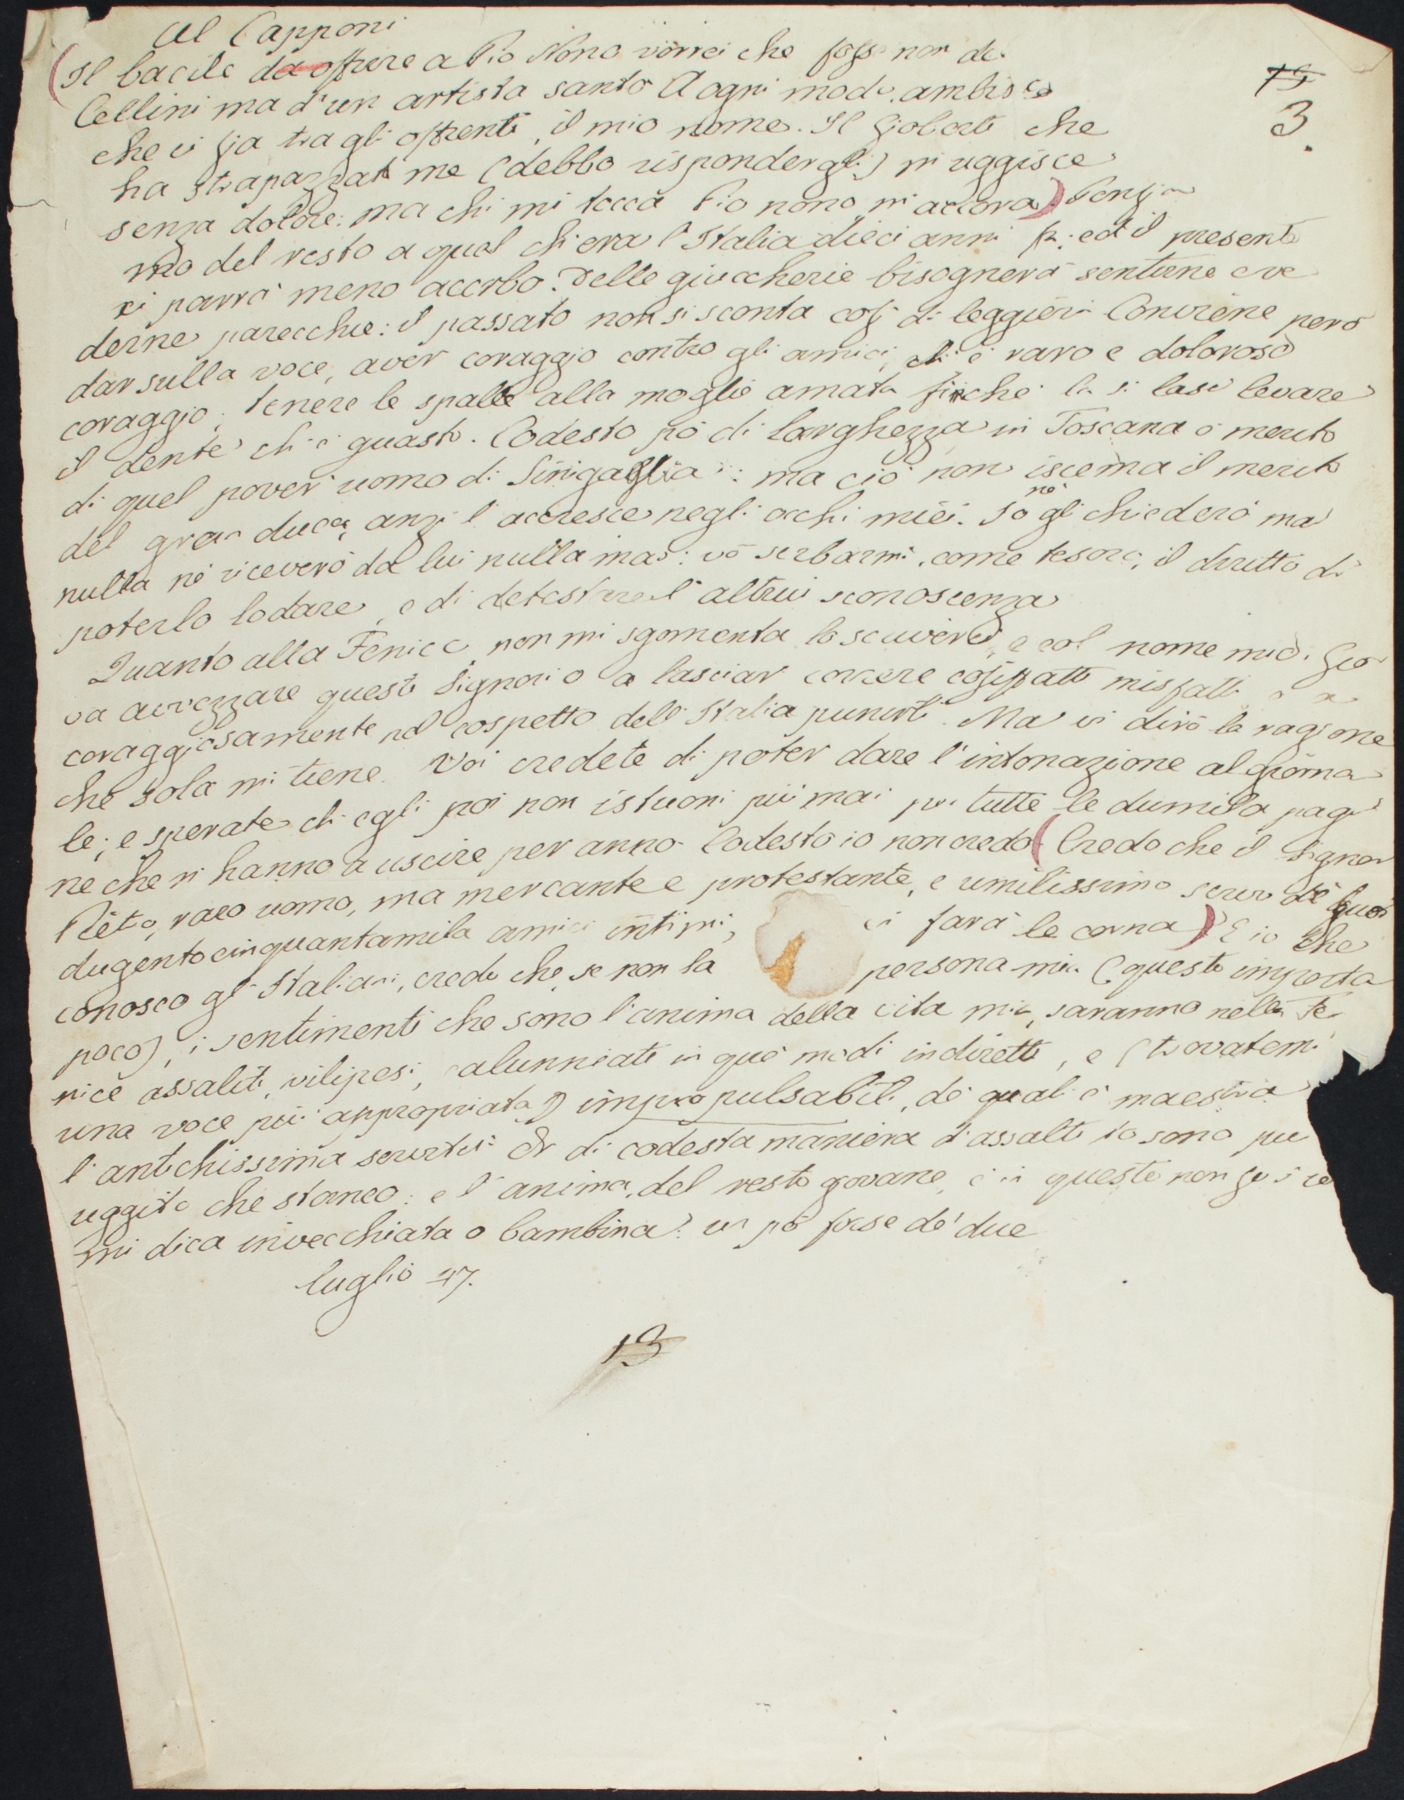 Al Capponi
(Il bacile da offrire a Pio Nono vorrei che foss non di
Cellini ma d'un artista santo A ogni modo, ambisco
che ci sia tra gli offrenti, il mio nome. Il Gioberti che
ha strapazzat me (debbo rispondergli) m'uggisce
senza dolore: ma chi mi tocca Pio nono, m'accora). Pensia
mo del resto a quel ch'era l'Italia dieci anni fa: ed il presente
ci parrà meno acerbo. Delle giuccherie bisognerà sentirne e ve
derne parecchie: il passato non si sconta così di leggieri Conviene però
dar sulla voce, aver coraggio contro gli amici, ch'è raro e doloroso
coraggio; tenere le spalle alla moglie amata finchè la si lasci levare
il dente ch'è guasto. Codesto pò di larghezza in Toscana è merito
di quel pover uomo di Sinigaglia: ma ciò non iscema il merito
del gran duca, anzi l'accresce negli occhi miei. Io nè gli chiederò mai
nulla nè riceverò da lui nulla mai: vò serbarmi, come tesoro, il diritto di
poterlo lodare, e di detestare l'altrui sconoscenza
Quanto alla Fenice non mi sgomenta lo scrivere, e col nome mio. Gio
va avvezzare questi Signori o a lasciar correre cosiffatti misfatti o a
coraggiosamente nel cospetto dell'Italia punirli. Ma vi dirò la ragione
che sola mi tiene. Voi credete di poter dare l'intonazione al giorna
le; e sperate ch'egli poi non istuoni più mai per tutte le dumila pagi
ne che n'hanno a uscire per anno. Codesto io non credo (Credo che il Signor
raro uomo, ma mercante e protestante, e umilissimo servo de' suoi
dugentocinquantamila amici intimi, vi farà le corna) E io che
conosco gl'Italiani, credo che, se non la persona mia (questo importa
poco), i sentimenti che sono l'anima della vita mia, saranno nella Fe
nice assaliti, vilipesi, calunniati in que' modi indiretti, e (trovatemi
una voce più appropriata) impropulsabili, de' quali è maestra
l'antichissima servitù. Or di codesta maniera d'assalti io sono più
uggito che stanco: e l'anima, del resto giovane, è in questo non so s'io
mi dica invecchiata o bambina: un pò forse de' due
luglio 47.
13
19
3.